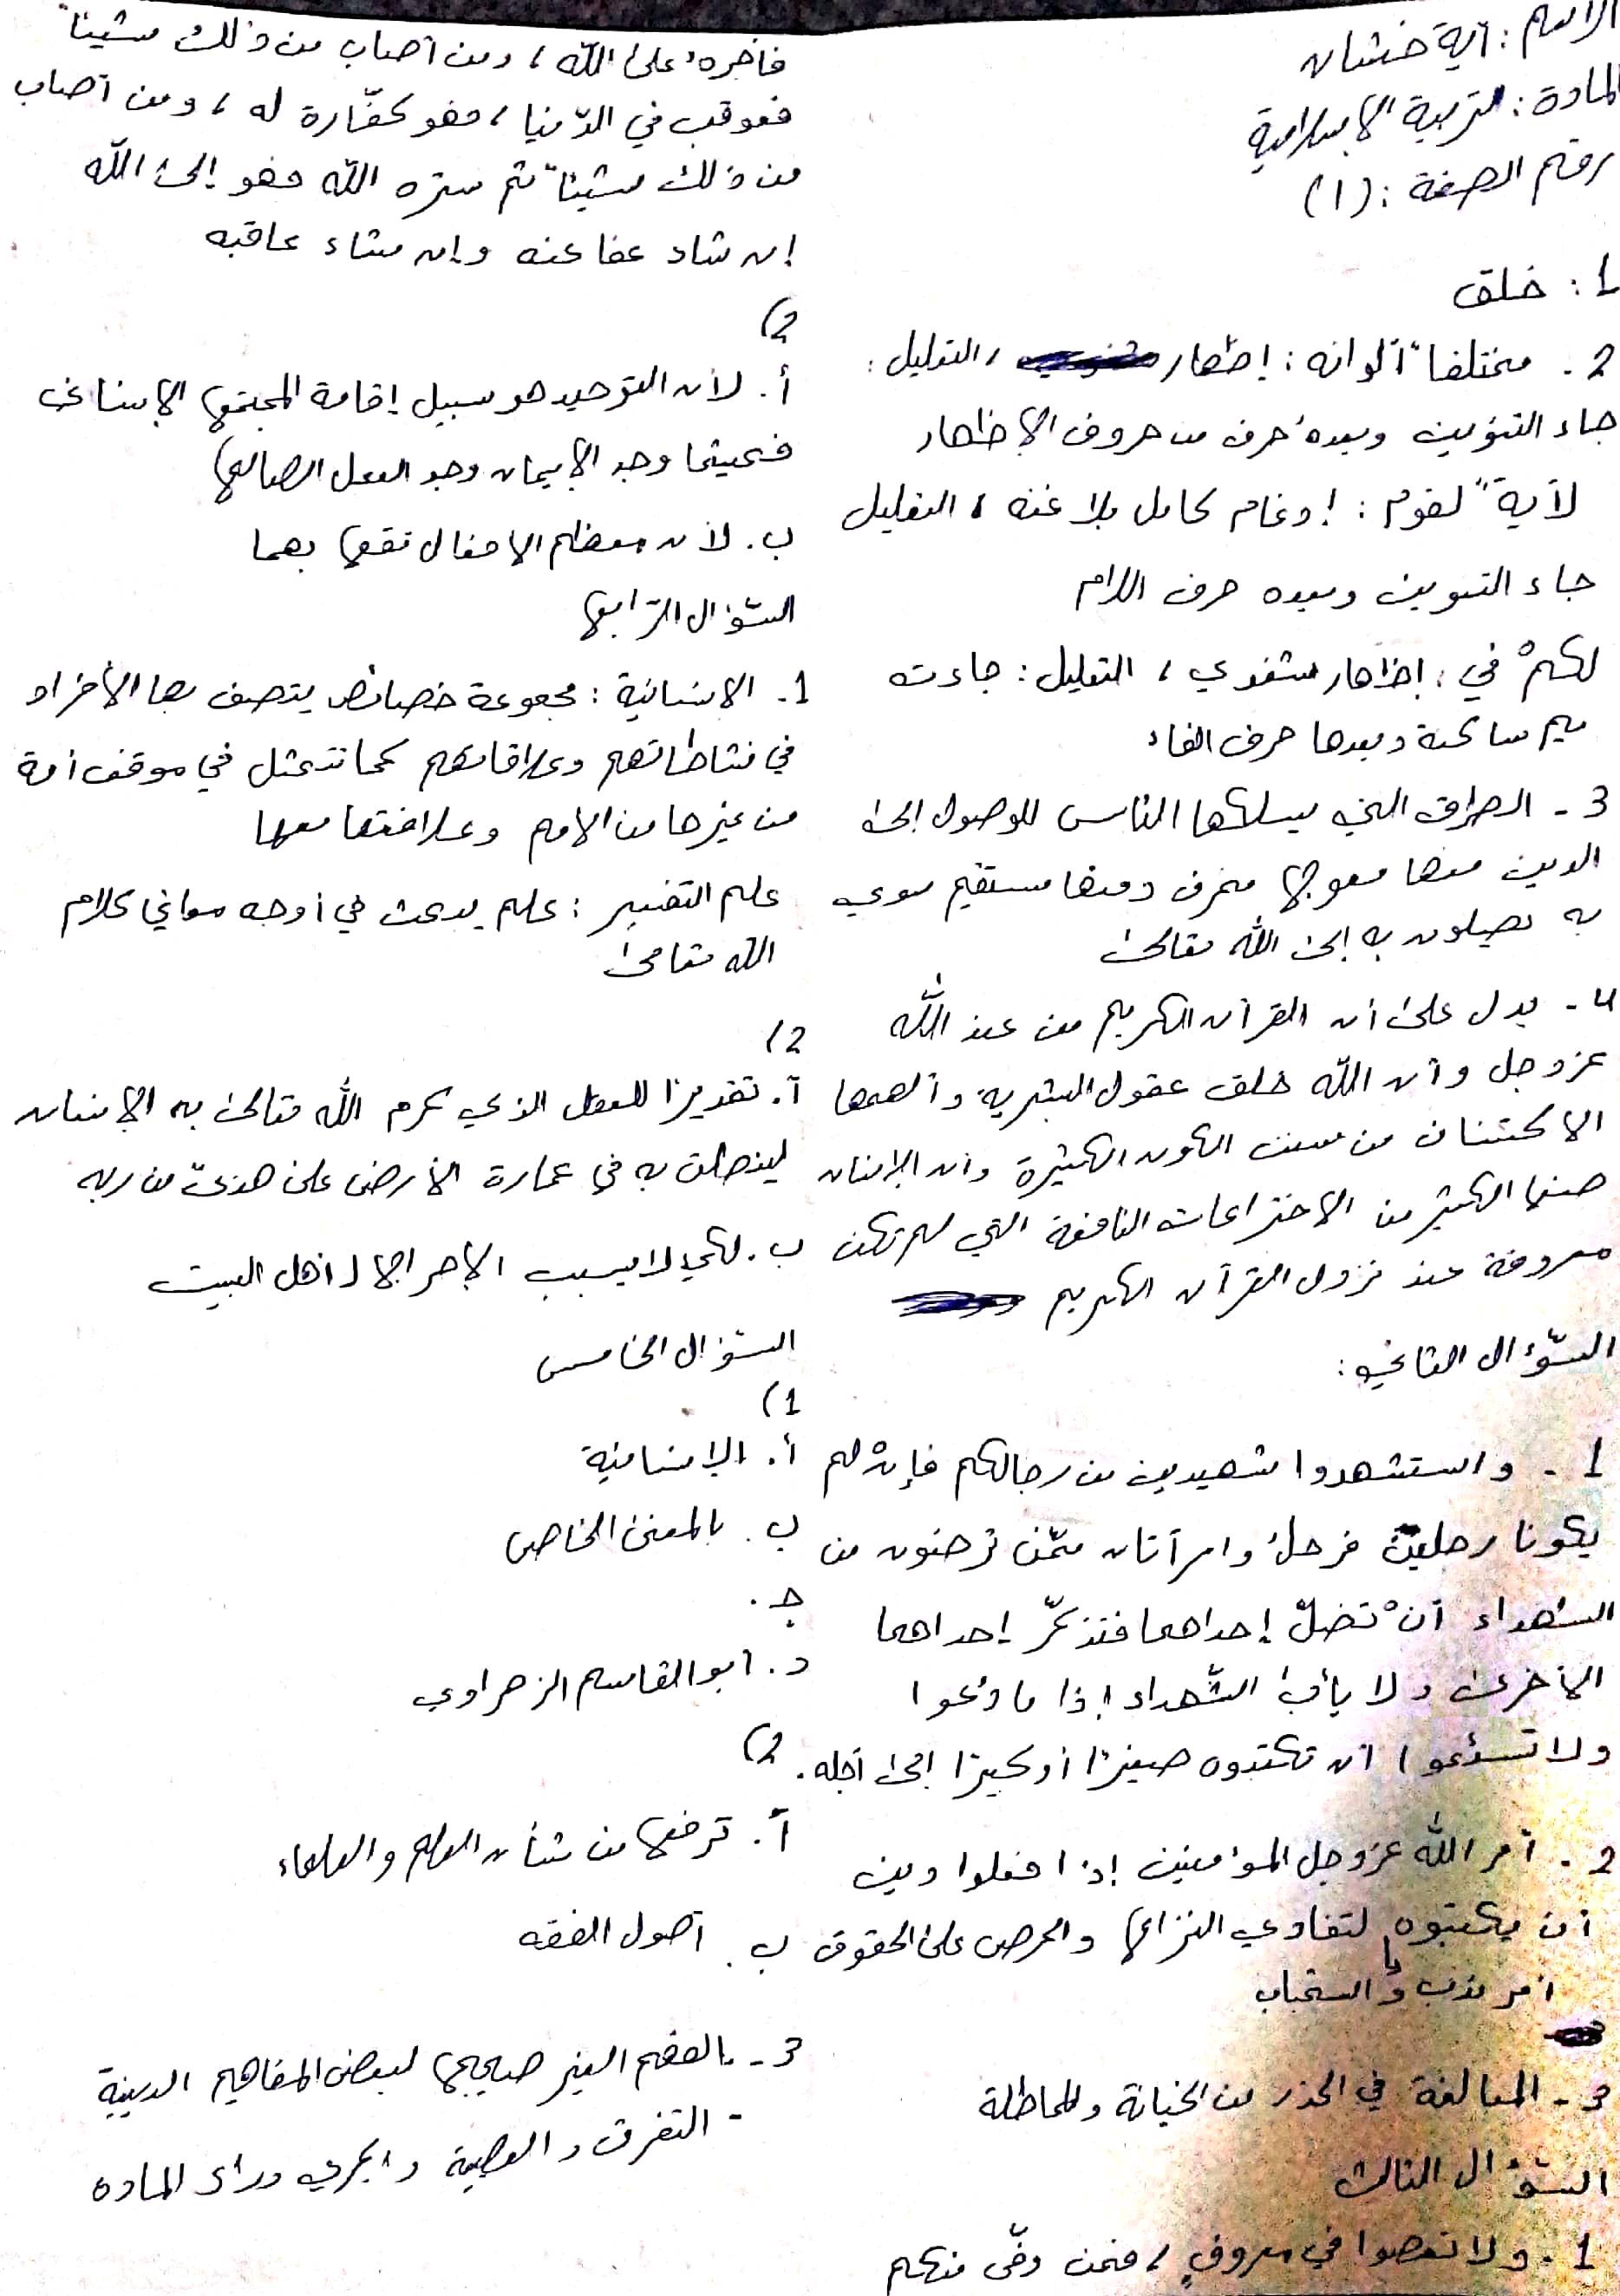 الاسم : آية خشان
المادة : التربية الإسلامية
رقم الصفحة : (1)
1 : خلق
2 - مختلفاً ألوانه : إظهار ، التعليل :
جاء التنوين وبعده حرف من حروف الإظهار
لآيةً لقوم : إدغام كامل بلا غنه ، التعليل
جاء التنوين وبعده حرف اللام
لكمْ في : إظهار شفوي ، التعليل : جاءت
ميم ساكنة وبعدها حرف الفاء
3 - الطرق التي يسلكها الناس للوصول إلى
الدين منها معوج منحرف ومنها مستقيم سوي
به يصلون به إلى الله تعالى
4 - يدل على أن القرآن الكريم من عند الله
عز وجل وأن الله خلق عقول البشرية وألهمها
الاكتشاف من سنن الكون الكثيرة وأن الإنسان
صنع الكثير من الاختراعات النافعة التي لم تكن
معروفة عند نزول القرآن الكريم
السّؤال الثاني :
1 - واستشهدوا شهيدين من رجالكم فإنْ لم
يكونا رجلين فرجلٌ وامرأتان ممّن ترضون من
الشهداء أنْ تضلّ إحداهما فتذكّر إحداهما
الأخرى ولا يأب الشّهداء إذا ما دُعوا
ولا تسئموا أن تكتبوه صغيرًا أو كبيرًا إلى أجله .
2 - أمر الله عز وجل المؤمنين إذا فعلوا دين
أن يكتبوه لتفادي النزاع والحرص على الحقوق
أمر ندب واستحباب
3 - المبالغة في الحذر من الخيانة والمماطلة
السّؤال الثالث
1 - ولا تعصوا في معروفٍ ، فمن وفّى منكم
فأجرهُ على الله ، ومن أصاب من ذلك شيئاً
فعوقب في الدّنيا ، فهو كفّارة له ، ومن أصاب
من ذلك شيئاً ثم ستره الله فهو إلى الله
إن شاء عفا عنه وإن شاء عاقبه
2)
أ. لأن التوحيد هو سبيل إقامة المجتمع الإنساني
فحيثما وجد الإيمان وجد العمل الصالح
ب. لأن معظم الأفعال تقع بهما
السّؤال الرّابع
1- الإنسانية : مجموعة خصائص يتصف بها الأفراد
في نشاطاتهم وعلاقاتهم كما تتمثل في موقف أمة
من غيرها من الأمم وعلاقتها معها
علم التفسير : علم يبحث في أوجه معاني كلام
الله تعالى
2)
أ. تقديرًا للعقل الذي كرم الله تعالى به الإنسان
لينطلق به في عمارة الأرض على هدىً من ربه
ب. لكي لا يسبب الإحراج لأهل البيت
السّؤال الخامس
1)
أ. الإنسانية
ب. بالمعنى الخاص
جـ .
د. أبو القاسم الزهراوي
2)
أ. ترفع من شأن العلم والعلماء
ب. أصول الفقه
3 - الفهم الغير صحيح لبعض المفاهيم الدينية
- التفرق والعصبية والجري وراء المادة